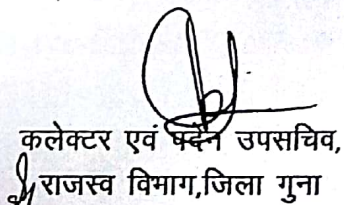 कलेक्टर एवं पदेन उपसचिव,
राजस्व विभाग,जिला गुना